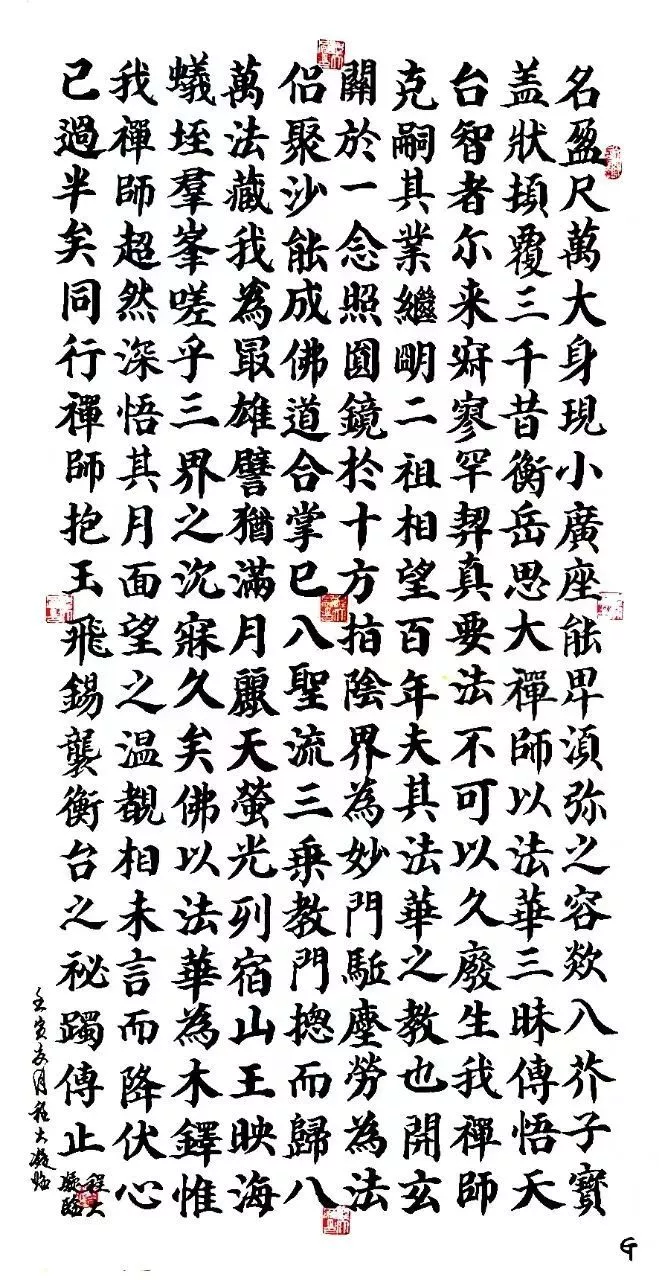 名盈尺萬大身現小廣座能卑湏弥之容欻入芥子寳
盖狀頓覆三千昔衡岳思大禪師以法華三昧傳悟天
台智者尒来寂寥罕契真要法不可以久廢生我禪師
克嗣其業繼明二祖相望百年夫其法華之教也開玄
關於一念照圓鏡於十方指陰界為妙門駈塵勞為法
侣聚沙能成佛道合掌已入聖流三乗教門揔而歸八
萬法藏我為最雄譬猶滿月麗天螢光列宿山王映海
蟻垤羣峯嗟乎三界之沉寐久矣佛以法華為木鐸惟
我禪師超然深悟其月面望之温覩相未言而降伏心
已過半矣同行禪師抱玉飛錫襲衡台之祕躅傳止
壬寅亥月程大凝临
程大
凝臨
G